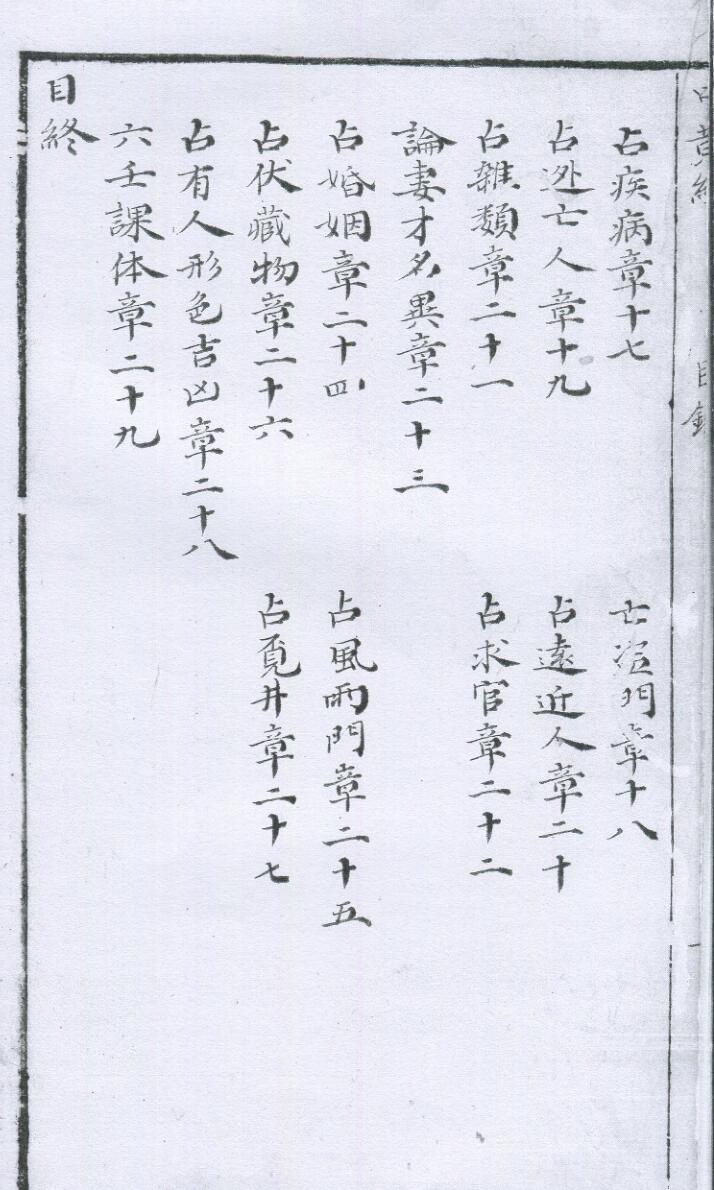 目錄
占疾病章十七　亡盗門章十八
占迯亡人章十九　占遠近人章二十
占雜類章二十一　占求官章二十二
論妻才名異章二十三
占婚姻章二十四　占風雨門章二十五
占伏藏物章二十六　占覔井章二十七
占有人形色吉凶章二十八
六壬課体章二十九
目終